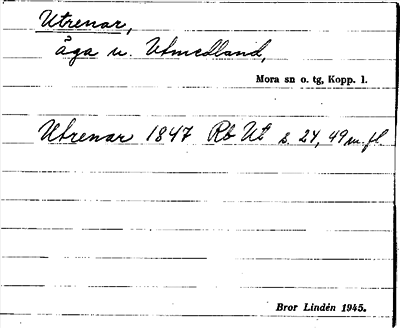 Utrenar,
äga u. Utmedland,
Mora sn o. tg, Kopp. l.
Utrenar 1847 Rb Ut s. 24, 49 m. fl.
Bror Lindén 1945.